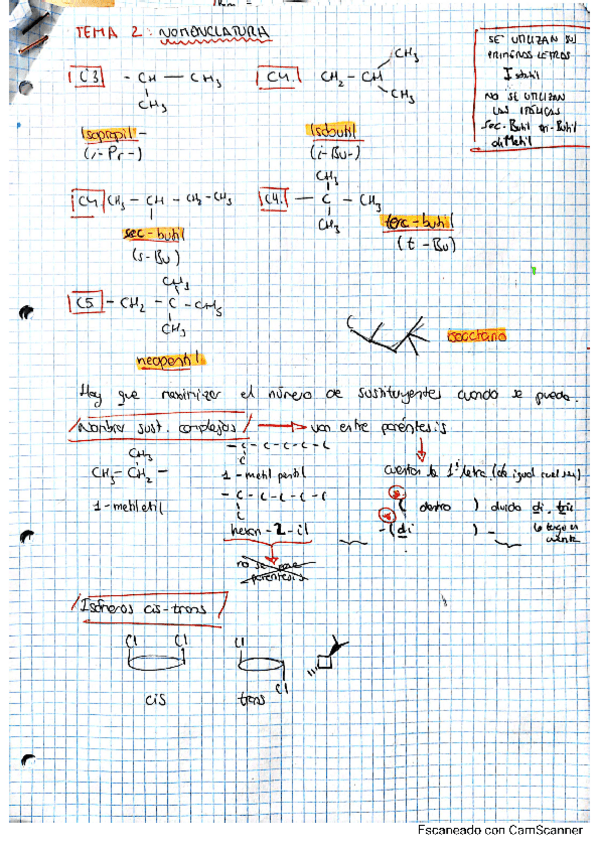 TEMA 2: NOMENCLATURA
SE UTILIZAN SU
PRIMERAS LETRAS
Isobutil
NO SE UTILIZAN
LAS ITÁLICAS
Sec-Butil ter-Butil
diMetil
C3 - CH - CH3
CH3
Isopropil -
(i-Pr-)
C4. CH2 - CH
CH3
CH3
Isobutil
(i-Bu-)
C4 CH3 - CH - CH2 - CH3
sec-butil
(s-Bu)
C4. - C - CH3
CH3
CH3
terc-butil
(t-Bu)
C5 - CH2 - C - CH3
CH3
CH3
neopentil
isooctano
Hay que maximizar el número de sustituyentes cuando se pueda.
Nombrar sust. complejos → van entre paréntesis
CH3
CH3 - CH2 -
1-metiletil
- C - C - C - C - C
C
1-metil pentil
- C - C - C - C - C
C
C
hexan-2-il
no se pone
paréntesis
cuentas la 1ª letra (da igual cual sea)
( dentro ) di. tri
- (di ) -
lo tengo en
cuenta
Isómeros cis-trans
Cl Cl
cis
Cl
Cl
trans
Escaneado con CamScanner